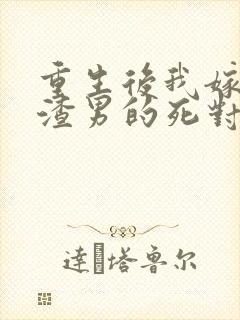 重生後我嫁
渣男的死對
達·塔鲁尔